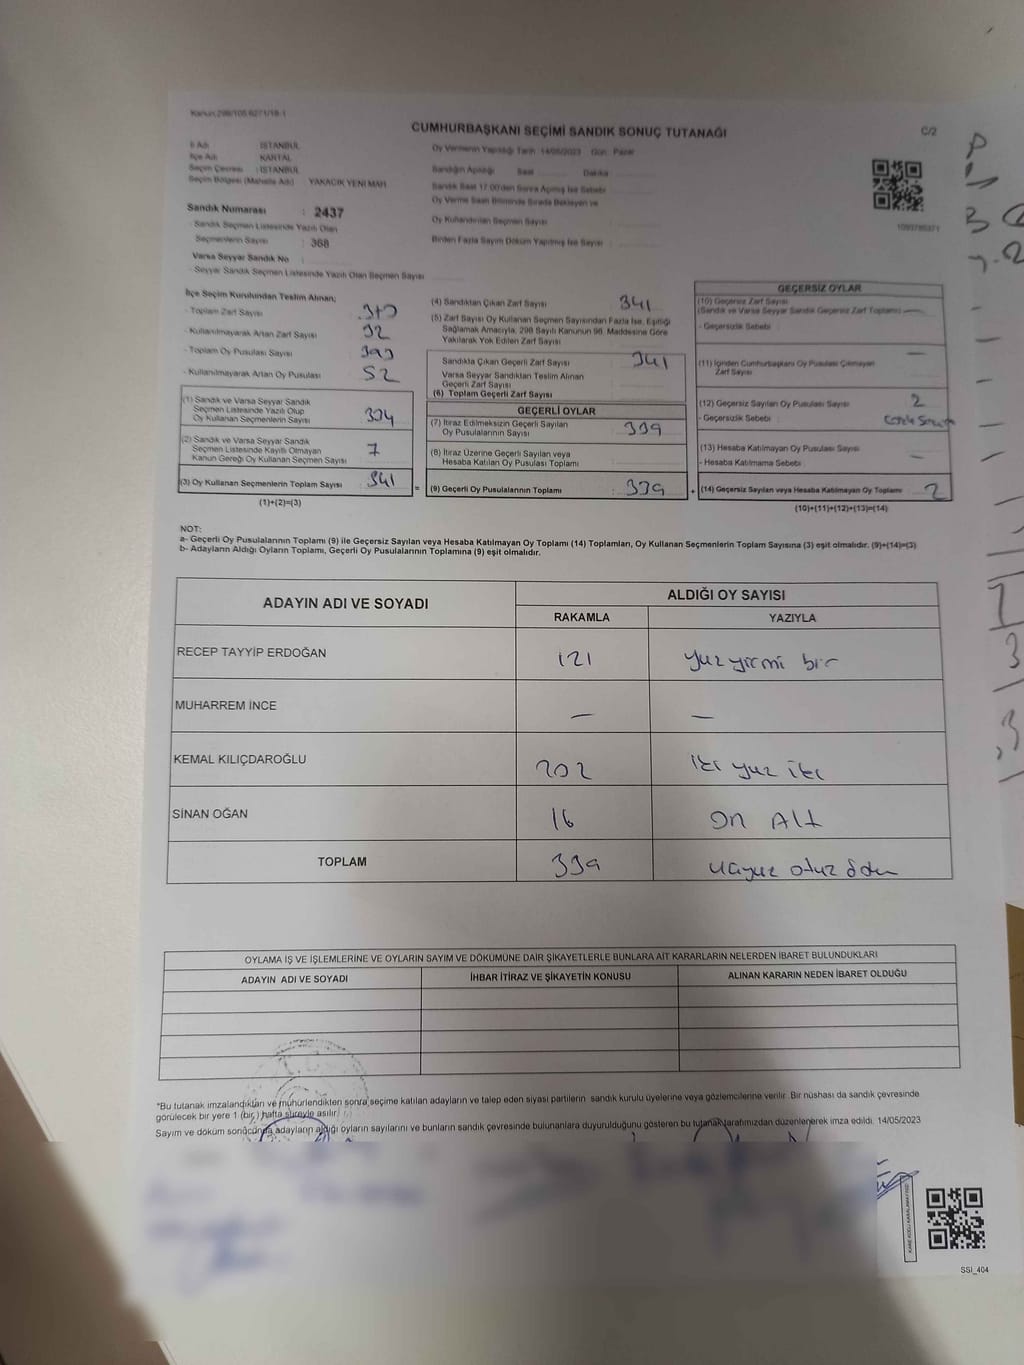 Kanun:298/105 6271/18-1
CUMHURBAŞKANI SEÇİMİ SANDIK SONUÇ TUTANAĞI
C/2
İl Adı : İSTANBUL
İlçe Adı : KARTAL
Seçim Çevresi : İSTANBUL
Seçim Bölgesi (Mahalle Adı) : YAKACIK YENİ MAH.
Sandık Numarası : 2437
- Sandık Seçmen Listesinde Yazılı Olan
Seçmenlerin Sayısı : 368
Varsa Seyyar Sandık No :
- Seyyar Sandık Seçmen Listesinde Yazılı Olan Seçmen Sayısı
Oy Vermenin Yapıldığı Tarih : 14/05/2023 Gün : Pazar
Sandığın Açıldığı Saat Dakika
Sandık Saat 17:00'den Sonra Açılmış İse Sebebi
Oy Verme Saati Bitiminde Sırada Bekleyen ve
Oy Kullandırılan Seçmen Sayısı
Birden Fazla Sayım Döküm Yapılmış İse Sayısı
İlçe Seçim Kurulundan Teslim Alınan;
- Toplam Zarf Sayısı
- Kullanılmayarak Artan Zarf Sayısı 32
- Toplam Oy Pusulası Sayısı 393
- Kullanılmayarak Artan Oy Pusulası 52
(1) Sandık ve Varsa Seyyar Sandık
Seçmen Listesinde Yazılı Olup
Oy Kullanan Seçmenlerin Sayısı 334
(2) Sandık ve Varsa Seyyar Sandık
Seçmen Listesinde Kayıtlı Olmayan
Kanun Gereği Oy Kullanan Seçmen Sayısı 7
(3) Oy Kullanan Seçmenlerin Toplam Sayısı 341
(1)+(2)=(3)
(4) Sandıktan Çıkan Zarf Sayısı 341
(5) Zarf Sayısı Oy Kullanan Seçmen Sayısından Fazla İse, Eşitliği
Sağlamak Amacıyla, 298 Sayılı Kanunun 98. Maddesine Göre
Yakılarak Yok Edilen Zarf Sayısı
Sandıkta Çıkan Geçerli Zarf Sayısı 341
Varsa Seyyar Sandıktan Teslim Alınan
Geçerli Zarf Sayısı
(6) Toplam Geçerli Zarf Sayısı
GEÇERLİ OYLAR
(7) İtiraz Edilmeksizin Geçerli Sayılan
Oy Pusulalarının Sayısı 339
(8) İtiraz Üzerine Geçerli Sayılan veya
Hesaba Katılan Oy Pusulası Toplamı
= (9) Geçerli Oy Pusulalarının Toplamı 339
GEÇERSİZ OYLAR
(10) Geçersiz Zarf Sayısı
(Sandık ve Varsa Seyyar Sandık Geçersiz Zarf Toplamı) —
- Geçersizlik Sebebi
(11) İçinden Cumhurbaşkanı Oy Pusulası Çıkmayan —
Zarf Sayısı
(12) Geçersiz Sayılan Oy Pusulası Sayısı 2
- Geçersizlik Sebebi :
(13) Hesaba Katılmayan Oy Pusulası Sayısı —
- Hesaba Katılmama Sebebi
+ (14) Geçersiz Sayılan veya Hesaba Katılmayan Oy Toplamı 2
(10)+(11)+(12)+(13)=(14)
NOT:
a- Geçerli Oy Pusulalarının Toplamı (9) ile Geçersiz Sayılan veya Hesaba Katılmayan Oy Toplamı (14) Toplamları, Oy Kullanan Seçmenlerin Toplam Sayısına (3) eşit olmalıdır. (9)+(14)=(3)
b- Adayların Aldığı Oyların Toplamı, Geçerli Oy Pusulalarının Toplamına (9) eşit olmalıdır.
ADAYIN ADI VE SOYADI ALDIĞI OY SAYISI
RAKAMLA YAZIYLA
RECEP TAYYİP ERDOĞAN 121 yüz yirmi bir
MUHARREM İNCE — —
KEMAL KILIÇDAROĞLU 202 iki yüz iki
SİNAN OĞAN 16 On Altı
TOPLAM 339 üçyüz otuz
OYLAMA İŞ VE İŞLEMLERİNE VE OYLARIN SAYIM VE DÖKÜMÜNE DAİR ŞİKAYETLERLE BUNLARA AİT KARARLARIN NELERDEN İBARET BULUNDUKLARI
ADAYIN ADI VE SOYADI İHBAR İTİRAZ VE ŞİKAYETİN KONUSU ALINAN KARARIN NEDEN İBARET OLDUĞU
*Bu tutanak imzalandıktan ve mühürlendikten sonra seçime katılan adayların ve talep eden siyasi partilerin sandık kurulu üyelerine veya gözlemcilerine verilir. Bir nüshası da sandık çevresinde
görülecek bir yere 1 (bir) hafta süreyle asılır.
Sayım ve döküm sonucunda adayların aldığı oyların sayılarını ve bunların sandık çevresinde bulunanlara duyurulduğunu gösteren bu tutanak tarafımızdan düzenlenerek imza edildi. 14/05/2023
KARE KODU KARALAMAYINIZ
SSİ_404